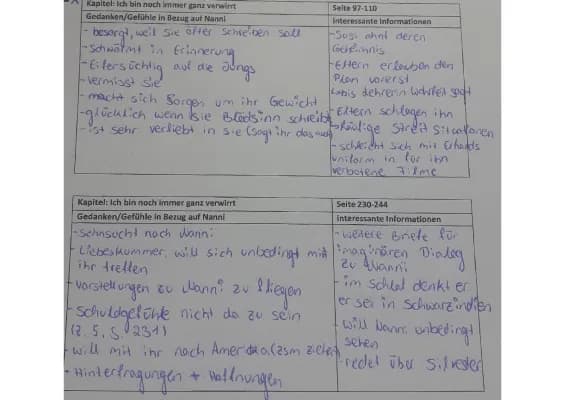 Kapitel: Ich bin noch immer ganz verwirrt
Seite 97-110
Gedanken/Gefühle in Bezug auf Nanni
Interessante Informationen
- besorgt, weil sie öfter schreiben soll
- schwärmt in Erinnerung
- Eifersüchtig auf die Jungs
- vermisst sie
- macht sich Sorgen um ihr Gewicht
- glücklich wenn sie Blödsinn schreibt
- ist sehr verliebt in sie (sagt ihr das
- Susi ahnt deren
Geheimnis
- Eltern erlauben den
Plan vorerst
bis
- Eltern schlagen ihn
- häufige Streit Situationen
- schleicht sich mit
uniform in für ihn
verbotene Filme
Kapitel: Ich bin noch immer ganz verwirrt
Seite 230-244
Gedanken/Gefühle in Bezug auf Nanni
Interessante Informationen
- Sehnsucht nach Nanni
- Liebeskummer, will sich unbedingt mit
ihr treffen
- Vorstellungen zu Nanni zu fliegen
- Schuldgefühle nicht da zu sein
(Z. 5, S. 231)
- will mit ihr nach Amerika (zsm ziehen)
- Hinterfragungen + Hoffnungen
- weitere Briefe für
imaginären Dialog
zu Nanni
- im Schlaf denkt er
er sei in Schwarzindien
- will Nanni unbedingt
sehen
- redet über Silvester